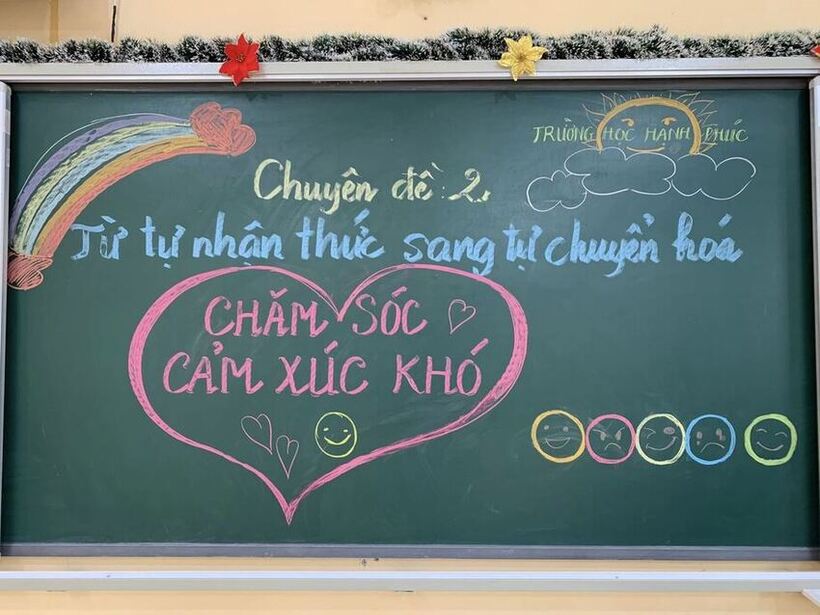 TRƯỜNG HỌC HẠNH PHÚC
Chuyên đề 2.
Từ tự nhận thức sang tự chuyển hoá
CHĂM SÓC
CẢM XÚC KHÓ